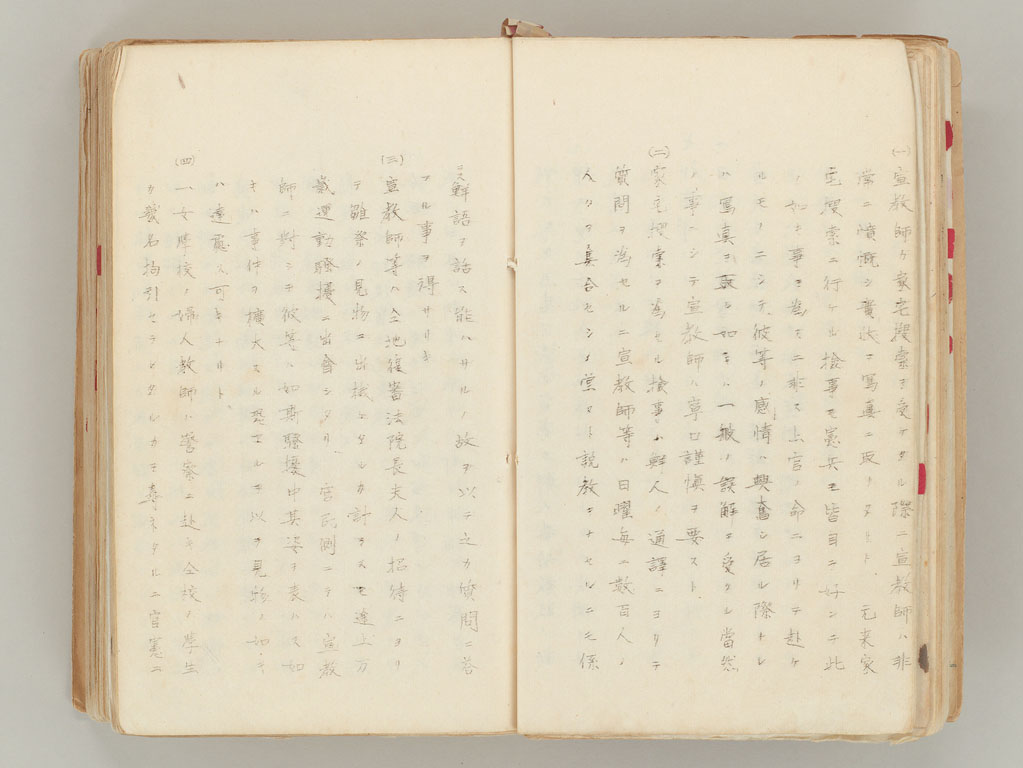 (一)宣教師ケ家宅搜索ヲ受ケタル際ニ宣教師ハ非
常ニ憤慨シ彼ヲ写真ニ取リタリト 元来家
宅搜索ニ行ケル検事モ憲兵モ皆自ラ好ンテ此
ノ如キ事ヲ為スニ非ス上官ノ命ニヨリテ赴ケ
ルモノニシテ彼等ノ感情ハ興奮シ居ル際トテ
ハ写真ヲ取ルカ如キハ一般ノ誤解ヲ受クル当然
ノ事ニシテ宣教師ハ寧ロ謹慎ヲ要スト
(二)家宅搜索ヲ為セル検事ハ鮮人ノ通譯ニヨリテ
質問ヲ為セルニ宣教師等ハ日曜毎ニ数百人ノ
人々ヲ集合セシメ堂々ト説教ヲナセルニモ係
ラス鮮語ヲ話ス能ハサルノ故ヲ以テ之カ質問ニ答
フル事ヲ得サリキ
(三)宣教師等ハ全地復審法院長夫人ノ招待ニヨリ
テ雛祭ノ見物ニ出掛ケタルカ計ラスモ途上万
歳運動騒擾ニ出會シタリ 官民側ニテハ宣教
師ニ對シテ彼等ハ如斯騒擾中其姿ヲ表ハス如
キハ事件ヲ擴大スル恐アルヲ以テ見物ノ如キ
ハ遠慮ス可キナリト
(四)一女學校ノ婦人教師ハ警察ニ赴キ全校ノ學生
カ数名拘引セラレタルカヲ尋ネタルニ官憲ニ